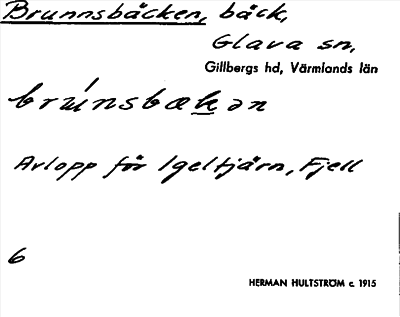 Brunnsbäcken, bäck,
Glava sn,
Gillbergs hd, Värmlands län
brúnsbækən
Avlopp för Igeltjärn, Fjell
6
HERMAN HULTSTRÖM c. 1915